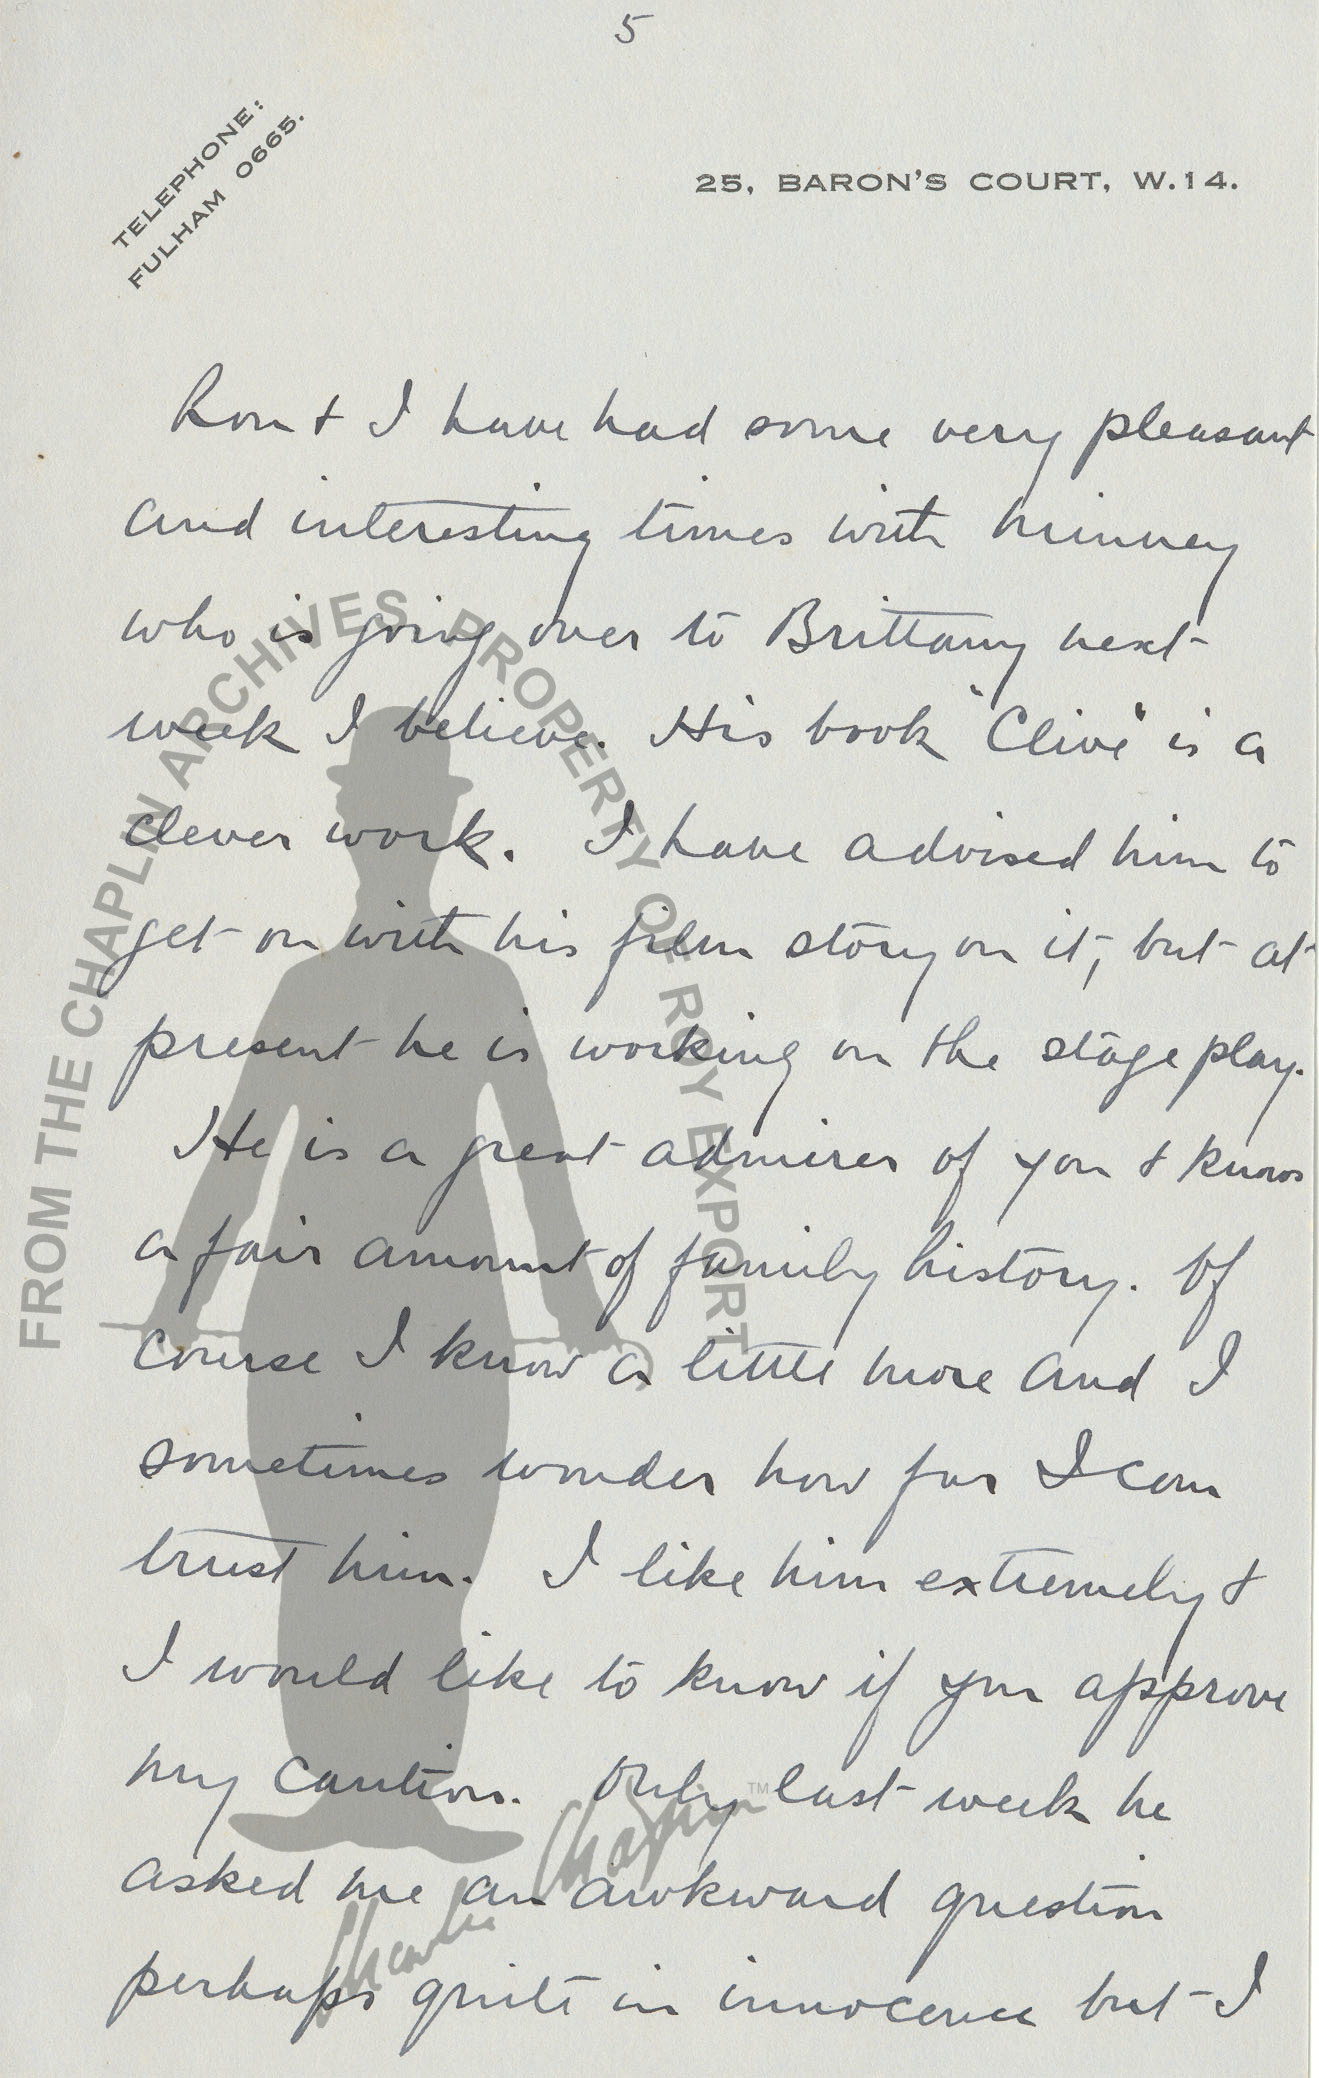 5
TELEPHONE:
FULHAM 0665.
25, BARON'S COURT, W.14.
Ron + I have had some very pleasant
and interesting times with Minney
who is going over to Brittany next
week I believe. His book "Clive" is a
clever work. I have advised him to
get on with his film story on it, but at
present he is working on the stage play.
He is a great admirer of you + knows
a fair amount of family history. Of
course I know a little more and I
sometimes wonder how far I can
trust him. I like him extremely +
I would like to know if you approve
my caution. Only last week he
asked me an awkward question
perhaps quite in innocence but I
FROM THE CHAPLIN ARCHIVES PROPERTY OF ROY EXPORT
Charlie Chaplin™